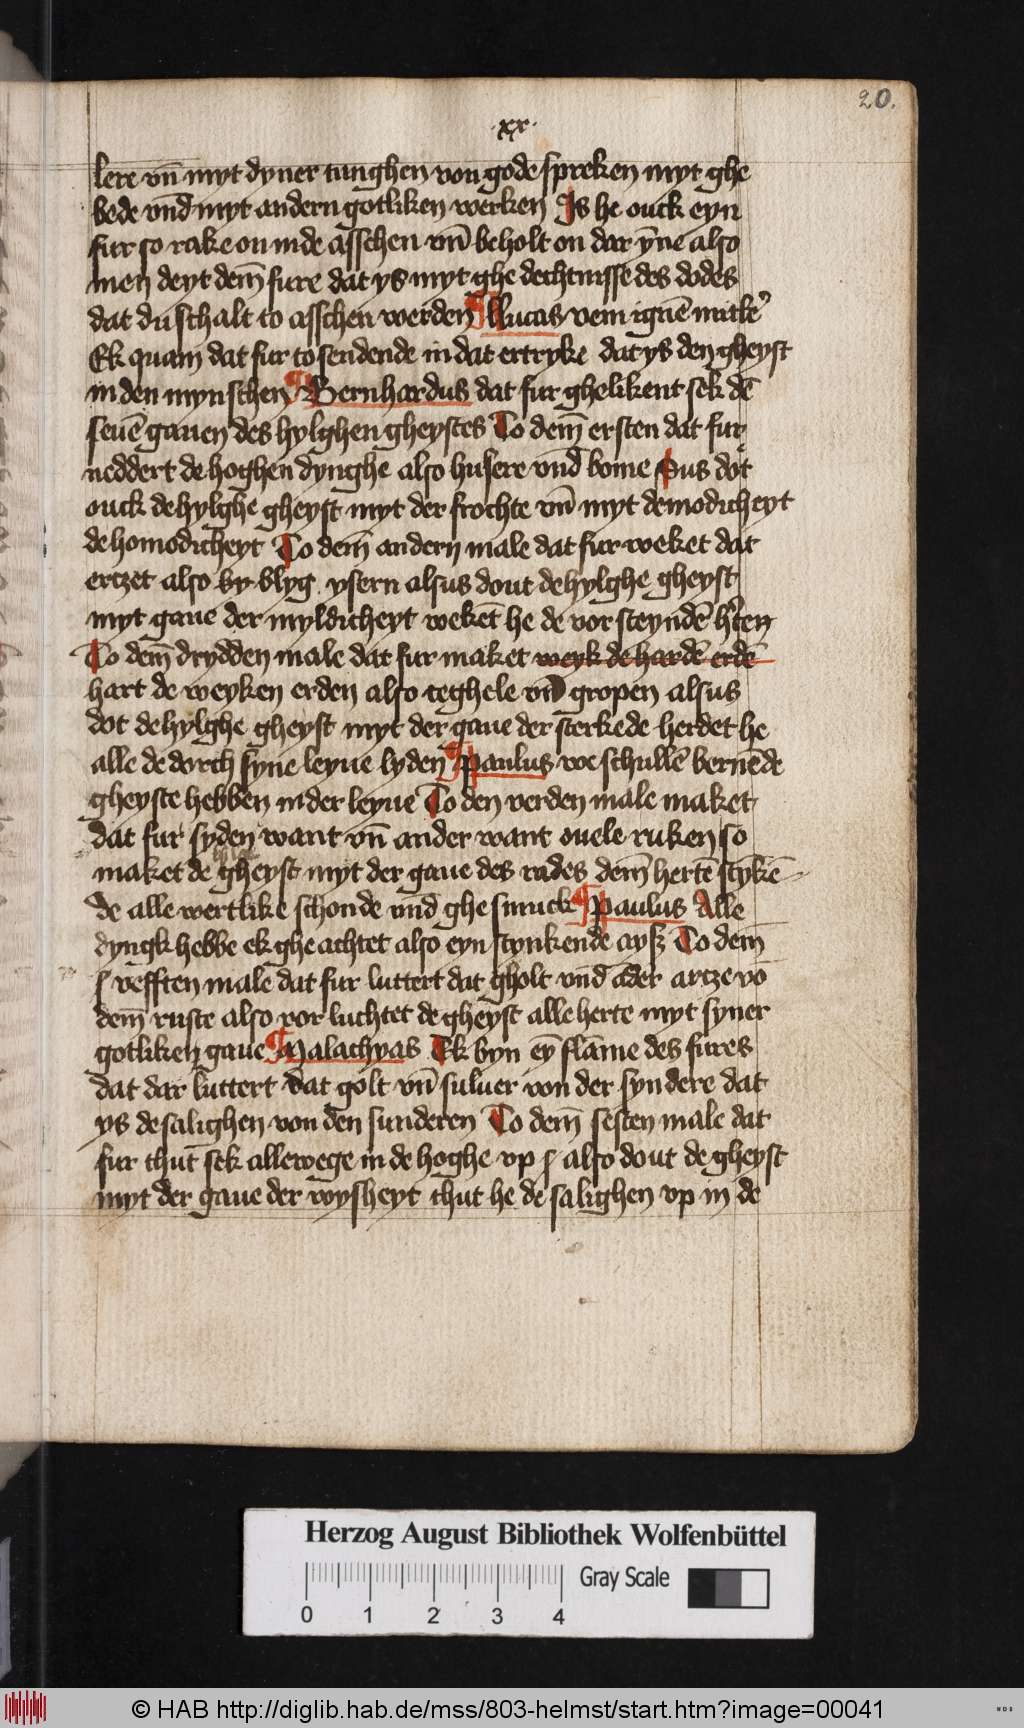 20.
·xx·
lere vn̄ myt dyner tunghen von gode spreken myt ghe
bede vnd myt andern gotliken werken Is he ouck eyn
fur so rake on in de asschen vn̄ beholt on dar ȳne also
men deyt dem̄ fure dat ys myt ghe dechtnisse des dodes
dat du schalt to asschen werden ¶ Lucas veni ignē mitte᷑
Ek quam dat fur to sendende in dat ertryke dat ys den gheyst
in den mynschen ¶ Bernhardus dat fur ghelikent sek dē
seuē gauen des hylghen gheystes To dem̄ ersten dat fur
neddert de hoghen dynghe also husere vnd bome Sus dot
ouck de hylghe gheyst myt der frochte vn̄ myt demodicheyt
de homodicheyt To dem̄ andern male dat fur weket dat
ertzet also by blyg ysern alsus dout de hylghe gheyst
myt gaue der myldicheyt weket he de vor steyndē h᷑ten
To dem̄ drydden male dat fur maket weyk de hardē erdē
hart de weyken erden also teghele vn̄ gropen alsus
dot de hylghe gheyst myt der gaue der sterkede herdet he
alle de dorch syne leyue lyden ¶ Paulus we schullē bernēde
gheyste hebben in der leyue To den verden male maket
dat fur syden want vn̄ ander want ouele ruken so
maket de gheyst myt der gaue des rades dem̄ hertē stykē
de alle wertlike schonde vnd ghe smuck ¶ Paulus Alle
dyngk hebbe ek ghe achtet also eyn stynkende ayß To dem̄
vefften male dat fur luttert dat gholt vnd ader artze vō
dem̄ ruste also vor luchtet de gheyst alle herte myt syner
gotliken gaue ¶ Malachyas Ek byn eȳ flāme des fures
dat dar luttert dat golt vn̄ suluer von der syndere dat
ys de salighen von den sunderen To dem̄ sesten male dat
fur thut sek allewege in de hoghe vp also dout de gheyst
myt der gaue der wysheyt thut he de salighen vp in de
Herzog August Bibliothek Wolfenbüttel
Gray Scale
0 1 2 3 4
© HAB http://diglib.hab.de/mss/803-helmst/start.htm?image=00041